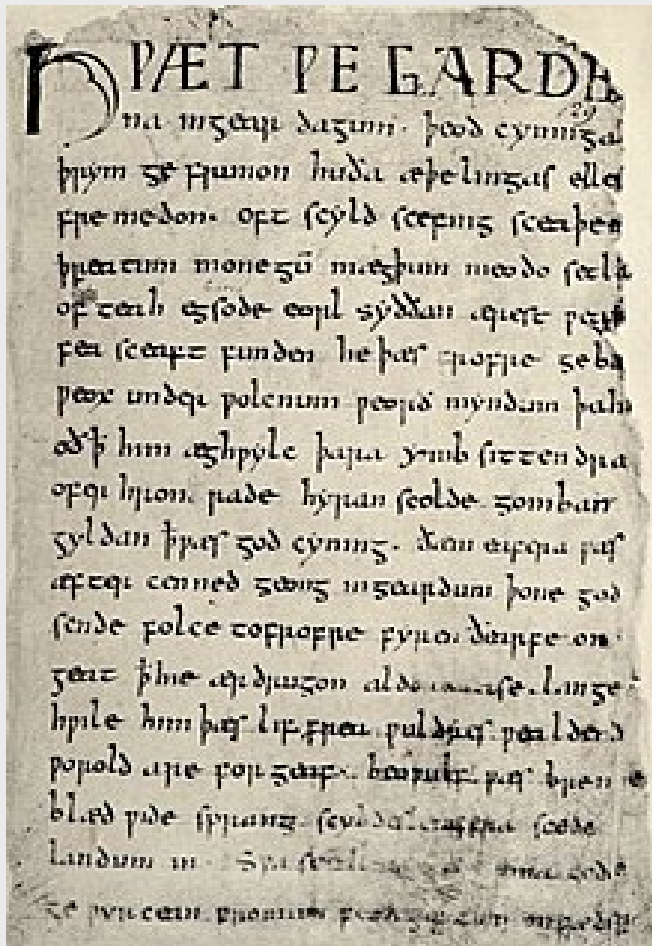 HǷÆT ǷE GARDE
na ingear dagum. þeod cyninga
þrym ge frunon huða æþelingas ellen
fremedon. oft scyld scefing sceaþena
þreatum monegū mægþum meodo setla
of teah egsode eorl syððan ærest ƿearð
fea sceaft funden he þæs frofre geba
ƿeox under ƿolcnum ƿeorð myndum þah
oðꝥ him æghƿylc þara ymb sittendra
ofer hron rade hyran scolde gomban
gyldan ꝥ ƿæs god cyning. ðæm eafera ƿæs
æfter cenned geong in geardum þone god
sende folce tofrofre fyren ðearfe on
geat ꝥ hie ær drugon aldor ase. lange
hƿile him þæs lif frea ƿuldres ƿealdend
ƿorold are for geaf. beoƿulf ƿæs breme
blæd ƿide sprang scyldes eafera scede
landum in. Sƿa sceal
ge ƿyrcean fromum feoh giftum